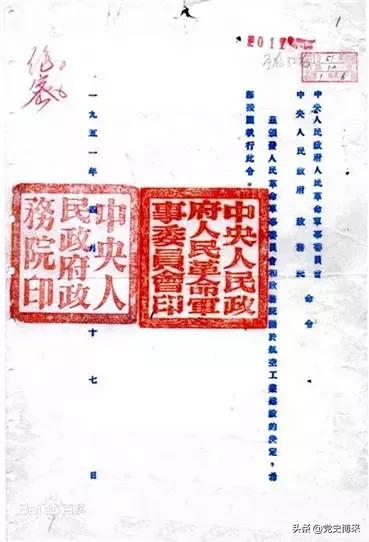 絕密
中央人民政府人民革命軍事委員會
中央人民政府政務院 命令
茲頒發人民革命軍事委員會和政務院關於航空工業建設的決定,
執行此令。
中央人民政
府人民革命軍
事委員會印
中央人
民政府政
務院印
一九五一年四月十七日
Bai百科
头条 @党史博采